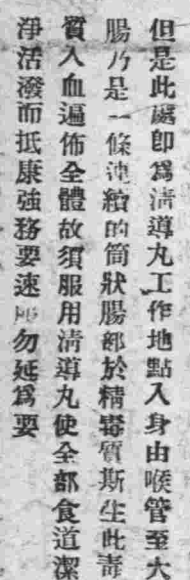 但是此處即爲淸導丸工作地點入身由喉管至大
腸乃是一條連續的筒狀腸部於精毒質斯生此毒
質入血遍佈全體故須服用淸導丸使全部食道潔
淨活潑而抵康強務要速勿延爲要